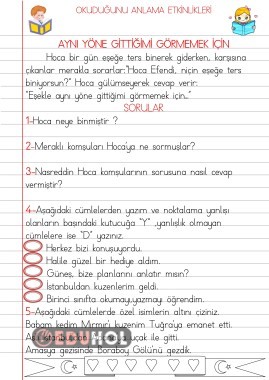 OKUDUĞUNU ANLAMA ETKİNLİKLERİ
AYNI YÖNE GİTTİĞİMİ GÖRMEMEK İÇİN
Hoca bir gün eşeğe ters binerek giderken, karşısına
çıkanlar merakla sorarlar:"Hoca Efendi, niçin eşeğe ters
biniyorsun?" Hoca gülümseyerek cevap verir:
"Eşekle aynı yöne gittiğimi görmemek için.."
SORULAR
1-Hoca neye binmiştir ?
2-Meraklı komşuları Hoca'ya ne sormuşlar?
3-Nasreddin Hoca komşularının sorusuna nasıl cevap
vermiştir?
4-Aşağıdaki cümlelerden yazım ve noktalama yanlışı
olanların başındaki kutucuğa "Y" ,yanlışlık olmayan
cümlelere ise "D" yazınız.
Herkez bizi konuşuyordu.
Halile güzel bir hediye aldım.
Güneş, bize planlarını anlatır mısın?
İstanbuldan kuzenlerim geldi.
Birinci sınıfta okumay,yazmayı öğrendim.
5-Aşağıdaki cümlelerde özel isimlerin altını çiziniz.
Babam kedim Mırmır'ı kuzenim Tuğra'ya emanet etti.
uçak ile gitti.
Amasya gezisinde Boraboy Gölü'nü gezdik.
EDUHOL